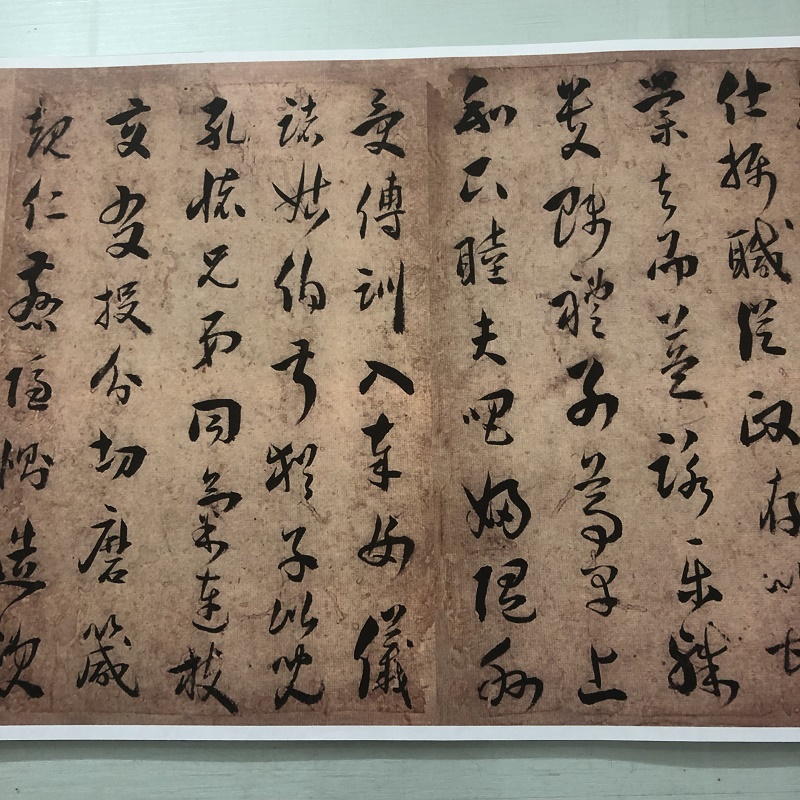 仕攝職從政存以甘
棠去而益詠樂殊
貴賤禮別尊卑上
和下睦夫唱婦隨外
受傅訓入奉母儀
諸姑伯叔猶子比兒
孔懷兄弟同氣連枝
交友投分切磨箴
規仁慈隱惻造次